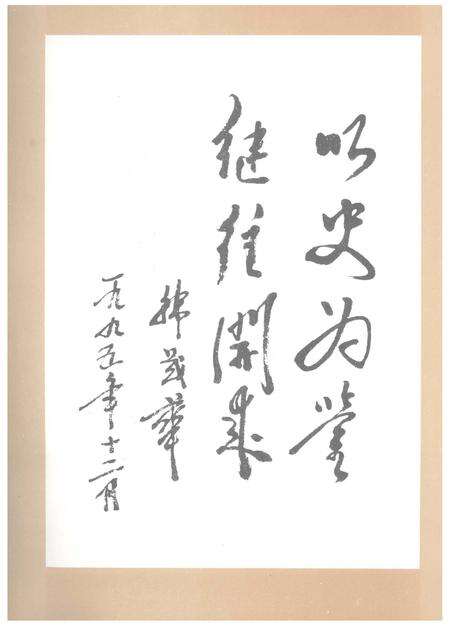 以史为鉴
继往開来
韩茂華
一九九五年十二月